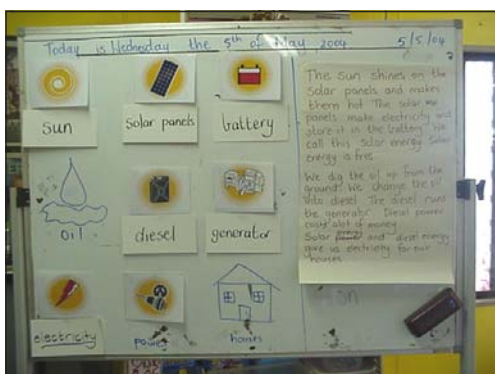 Today is Wednesday the 5th of May 2004
5/5/04
sun
solar panels
battery
oil
diesel
generator
electricity
power
homes
The sun shines on the
solar panels and makes
them hot. The solar
panels make electricity and
store it in the battery. We
call this solar energy. Solar
energy is free.
We dig the oil up from the
ground. We change the oil
into diesel. The diesel runs
the generator. Diesel power
costs alot of money.
Solar energy and diesel energy
give us electricity for our
houses.